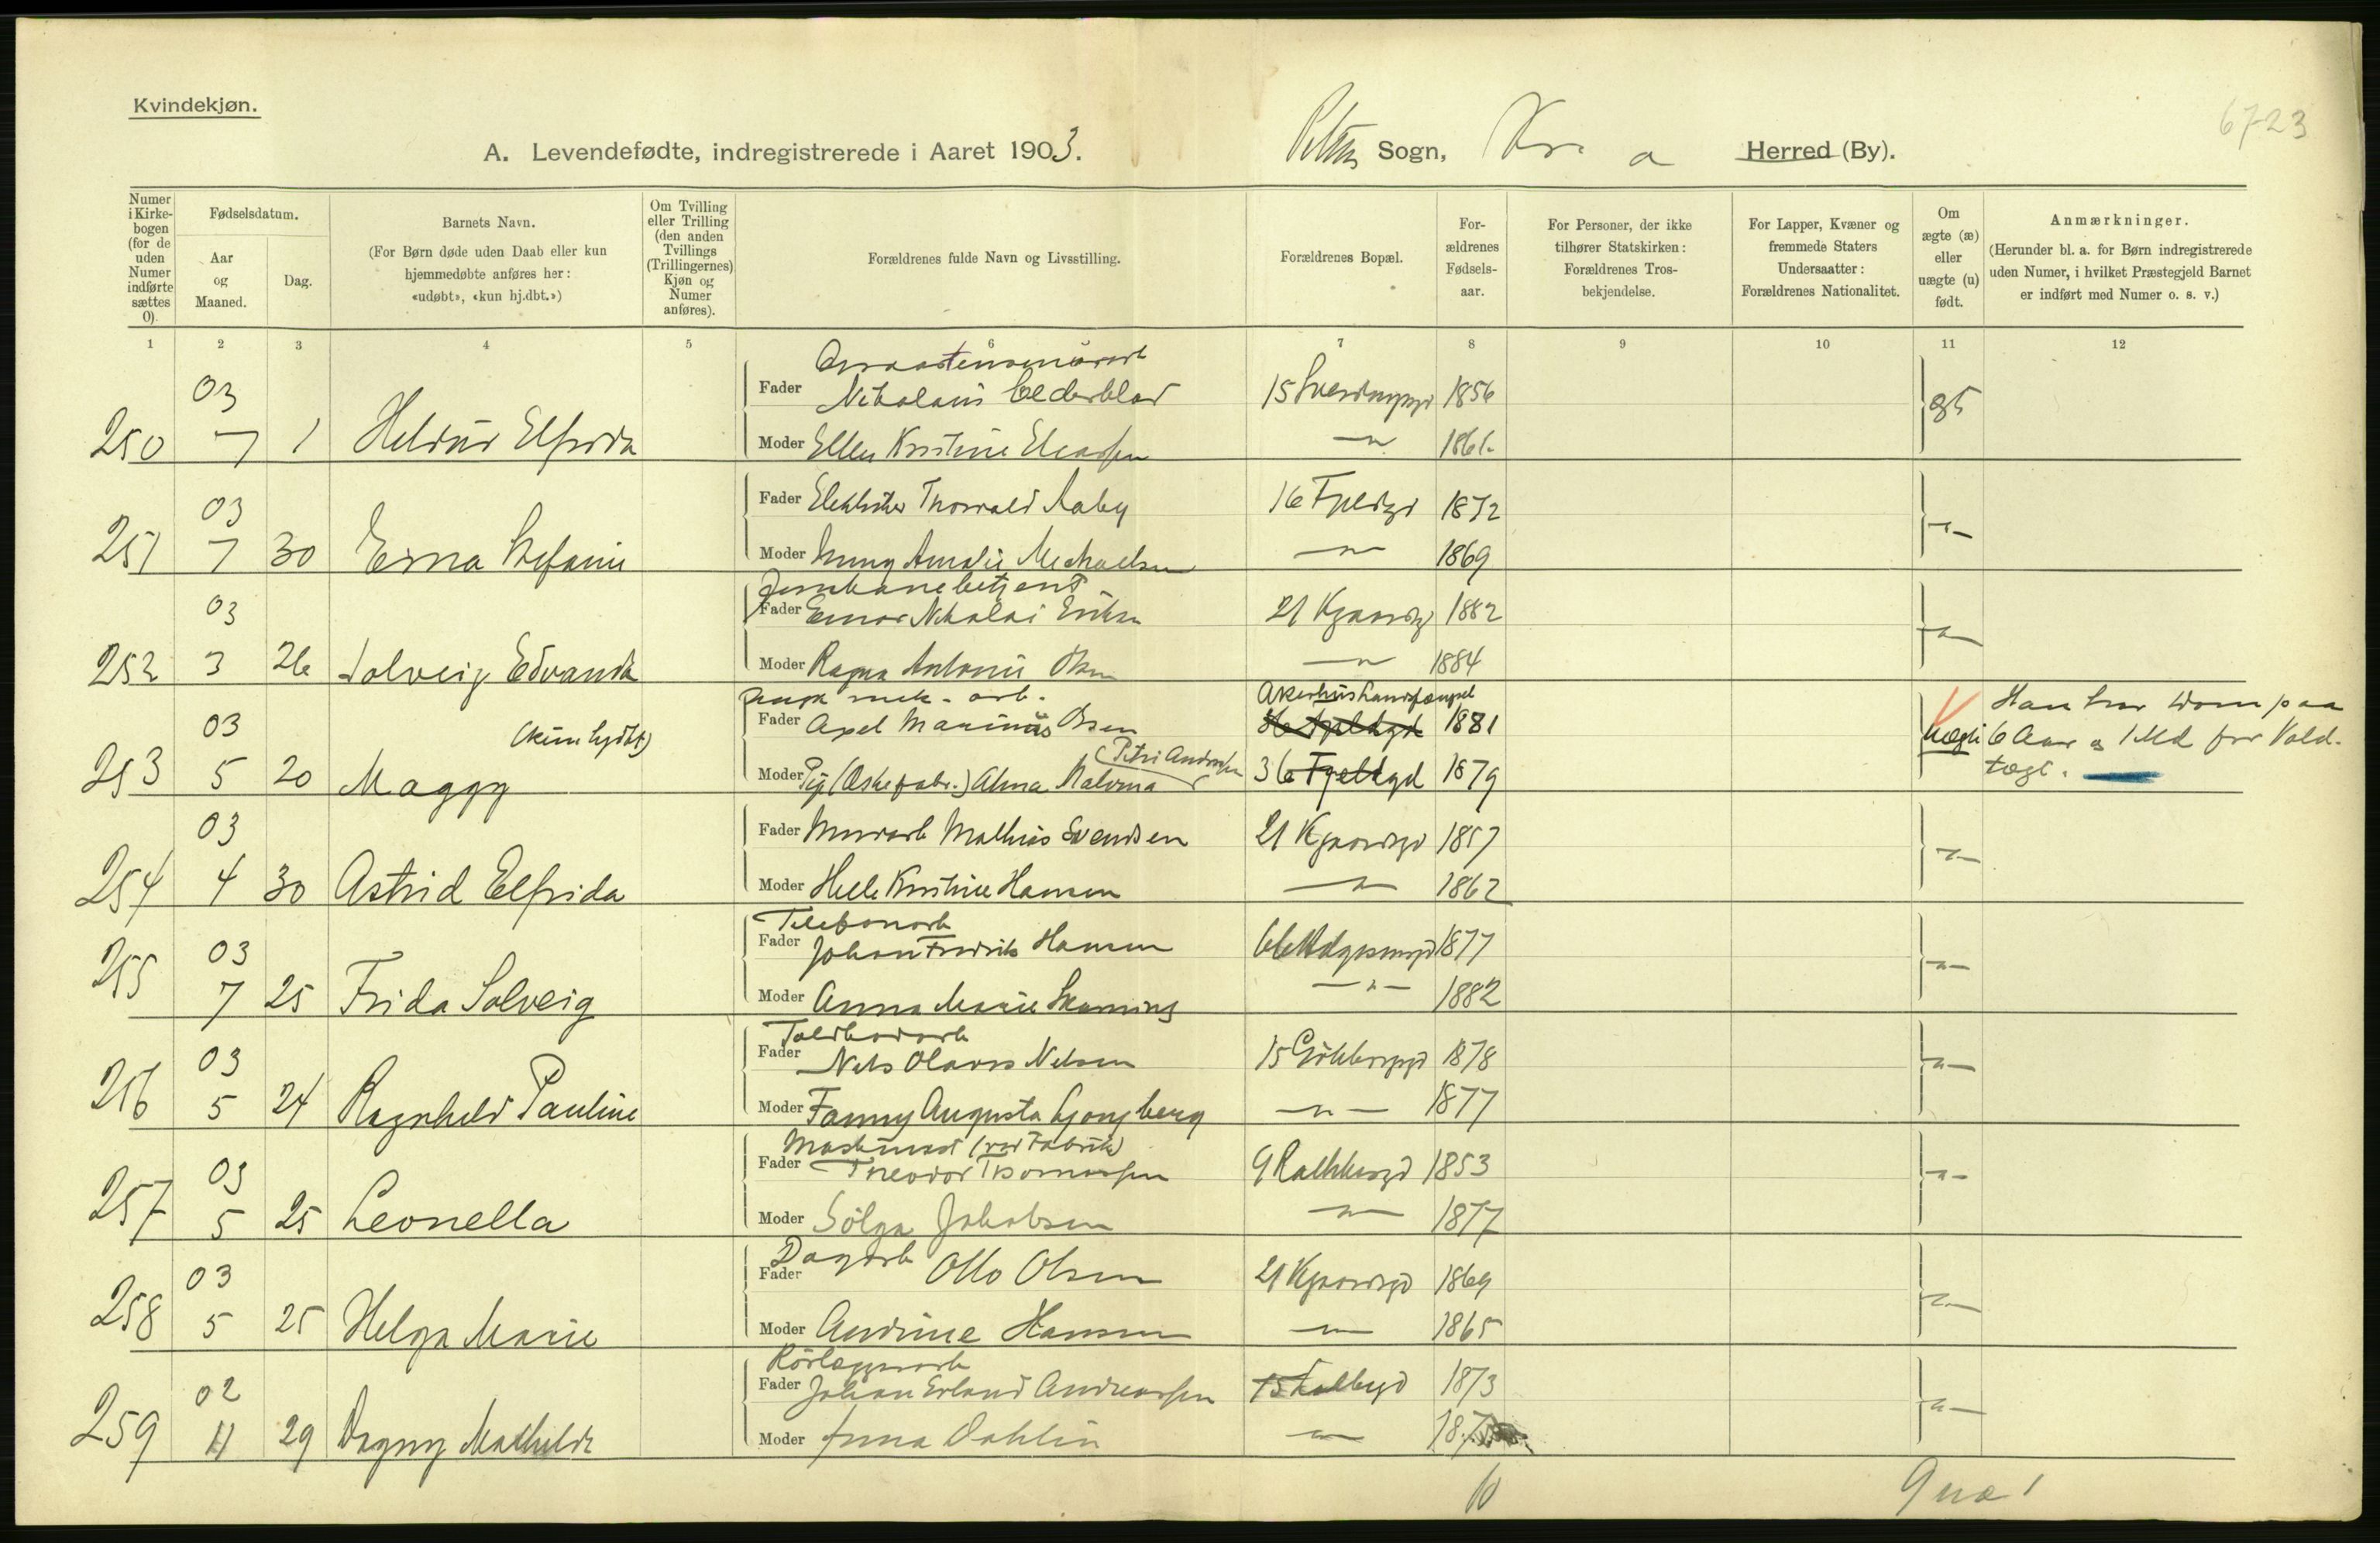 Kvindekjøn.
6723
A. Levendefødte, indregistrerede i Aaret 1903. Petrus Sogn, Kr.a Herred (By).
Numer i Kirke-bogen (for de uden Numer indførte sættes 0).
Fødselsdatum.
Aar og Maaned.
Dag.
Barnets Navn.
(For Børn døde uden Daab eller kun hjemmedøbte anføres her: «udøbt», «kun hj.dbt.»)
Om Tvilling eller Trilling (den anden Tvillings (Trillingernes) Kjøn og Numer anføres).
Forældrenes fulde Navn og Livsstilling.
Forældrenes Bopæl.
For-ældrenes Fødsels-aar.
For Personer, der ikke tilhører Statskirken: Forældrenes Tros-bekjendelse.
For Lapper, Kvæner og fremmede Staters Undersaatter: Forældrenes Nationalitet.
Om ægte (æ) eller uægte (u) født.
Anmærkninger.
(Herunder bl. a. for Børn indregistrerede uden Numer, i hvilket Præstegjeld Barnet er indført med Numer o. s. v.)
1 2 3 4 5 6 7 8 9 10 11 12
03
Fader Nikolaus Cederblad 15 1856
250 7 1 Hildur Elfrida
Moder Ellen Kristine Eliassen —"— 1861
03
Fader Elektriker Thorvald Aaby 16 Fjeldgd 1872
251 7 30 Erna Stefanie
Moder Amalie Michaelsen —"— 1869 —"—
Jernbanebetjent
03
Fader Einar Nikolai Eriksen 21 1882
252 3 26 Solveig Edvarda
Moder Ragna Antonie Olsen —"— 1884 —"—
mek. arb. Akershus Landsfængsel
03 (kun hjdbt)
Fader Axel Marinius Olsen 36 Fjeldgd 1881
Han har Dom paa
uægte 6 Aar og 1 Md for Vold-
tægt.
253 5 20 Maggy
Moder Pige (Æskefabr.) Alma Malvina Petri Andersen 36 Fjeldgd 1879
03
Fader Murarb Mathias Svendsen 21 1857
254 4 30 Astrid Elfrida
Moder Helle Kristine Hansen —"— 1862 —"—
Telefonarb
03
Fader Johan Fredrik Hansen 1877
255 7 25 Frida Solveig
Moder Anna Marie —"— 1882 —"—
Toldbodarb
03
Fader Nils Olavus Nilsen 15 Gøteborggd 1878
256 5 24 Ragnhild Pauline
Moder Fanny Augusta Ljongberg —"— 1877 —"—
Maskinist (ved Fabrik)
03
Fader Theodor Thomassen 9 Rathkesgd 1853
257 5 25 Leonella
Moder Sölga Jakobsen —"— 1877 —"—
Dagarb
03
Fader Otto Olsen 21 1869
258 5 25 Helga Marie
Moder Andrine Hansen —"— 1865 —"—
Rörlæggerarb
02
Fader Johan Erland Andreassen 15 1873
259 11 29 Dagny Mathilde
Moder Anna Dahlin —"— —"—
10
9 uæ 1